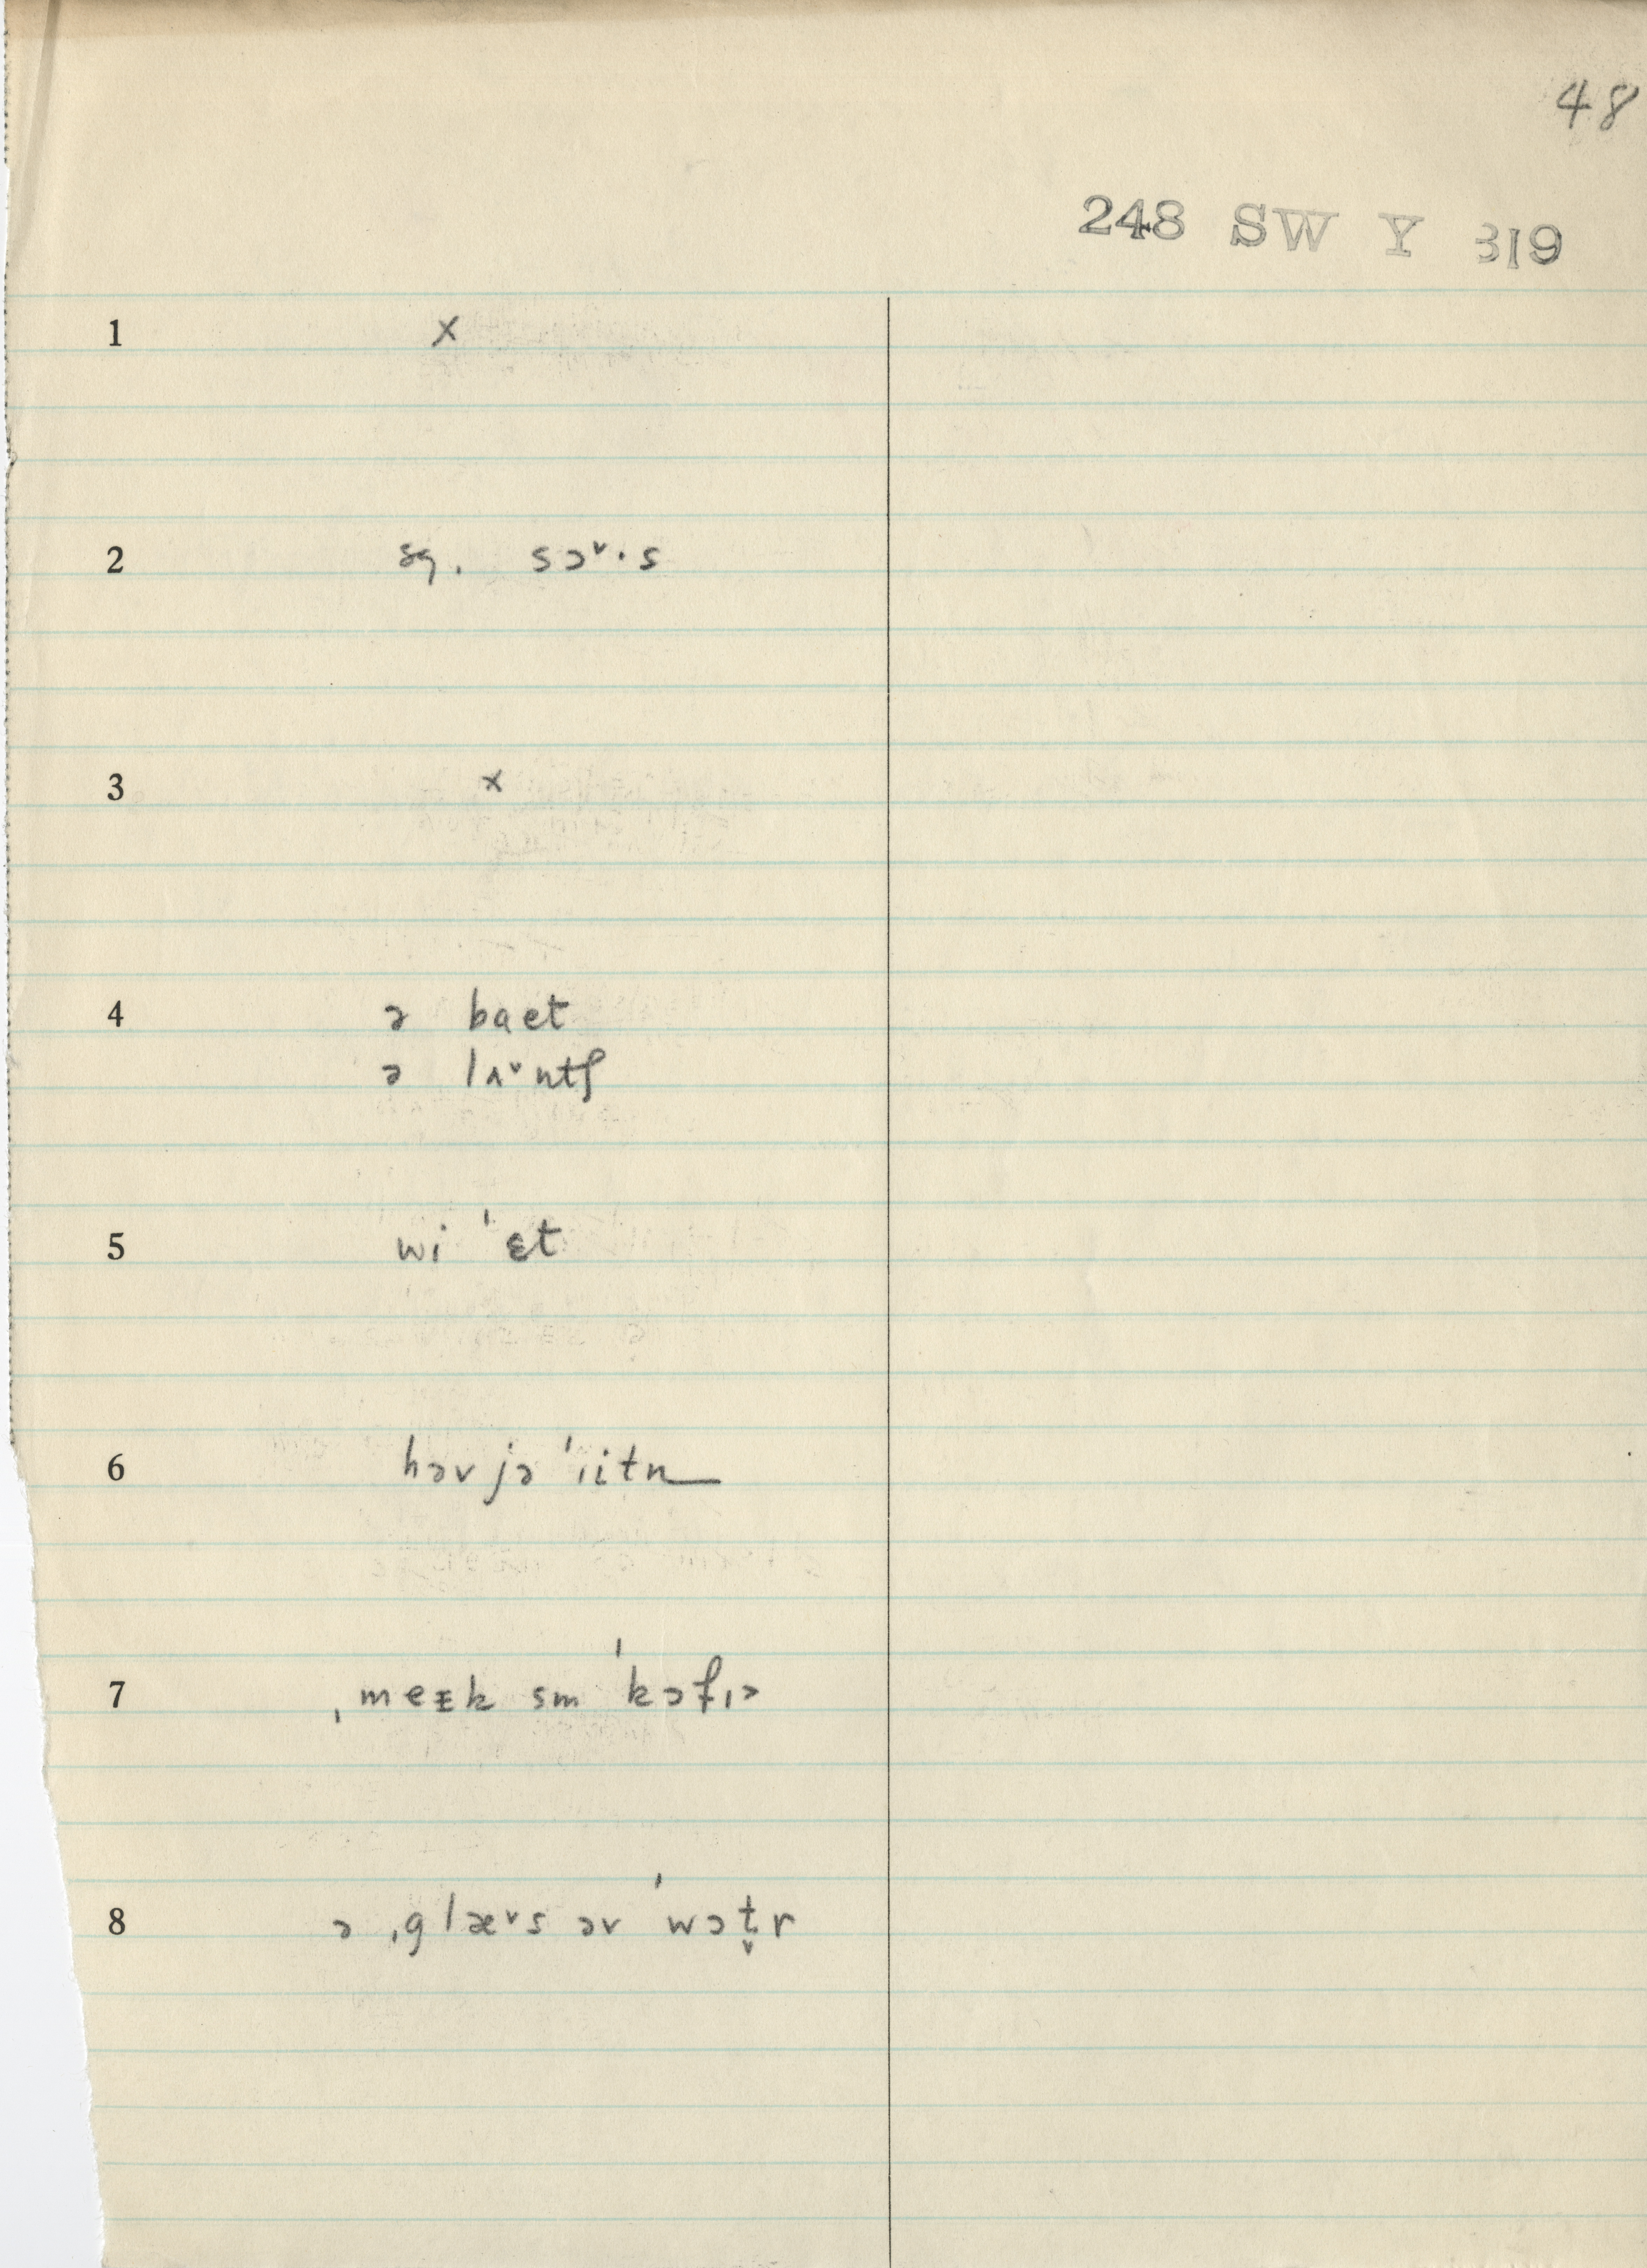 48
248 SW Y 319
1 x
2 sg. sɔˇ·s
3 x
4 ə baet
ə lʌˇntʃ
5 wi ˈɛt
6 həv jə ˈiitn
7 ˌmeᵻk sm ˈkɔfɪə
8 ə ˌglæˇs əv ˈwɔt̬r